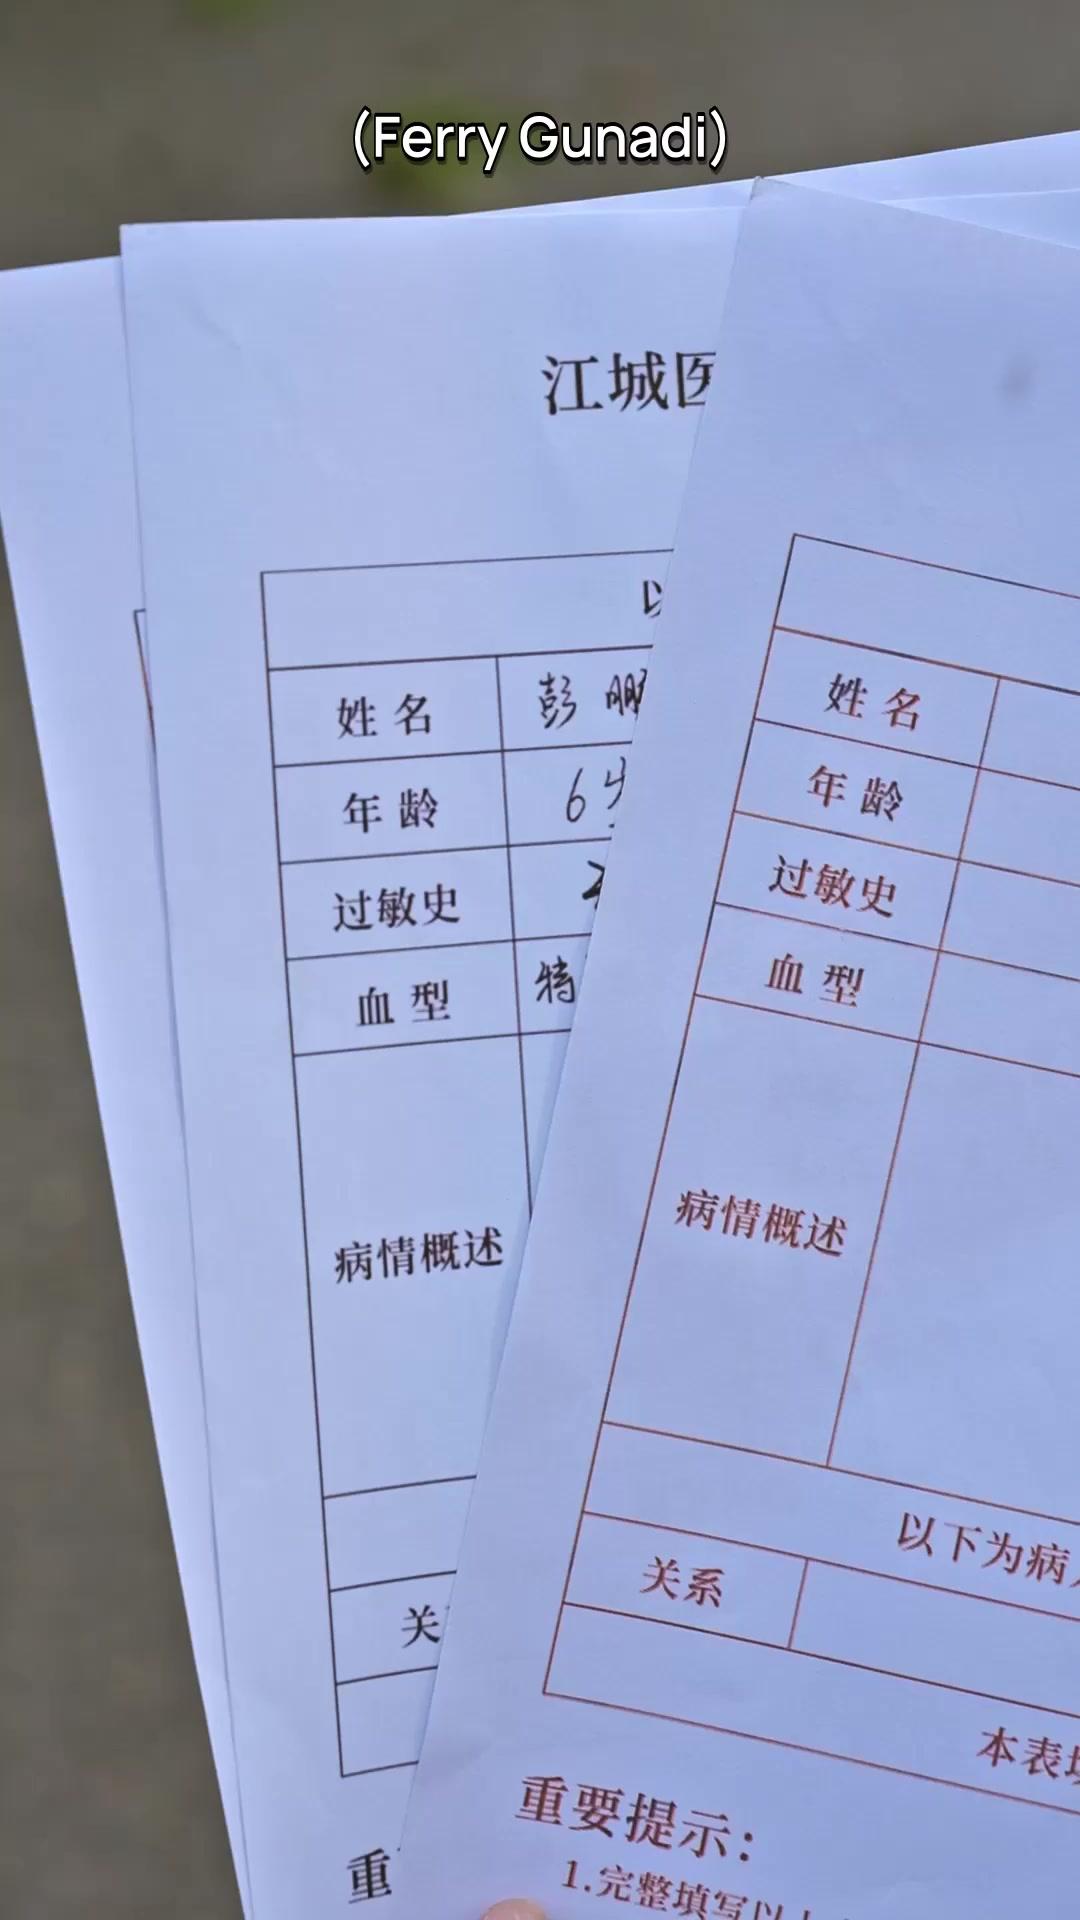 (Ferry Gunadi)
江城医
以
姓名
彭鹏
年龄
6岁
过敏史
血型
特
病情概述
关
重
姓名
年龄
过敏史
血型
病情概述
以下为病人
关系
本表填
重要提示：
1.完整填写以上